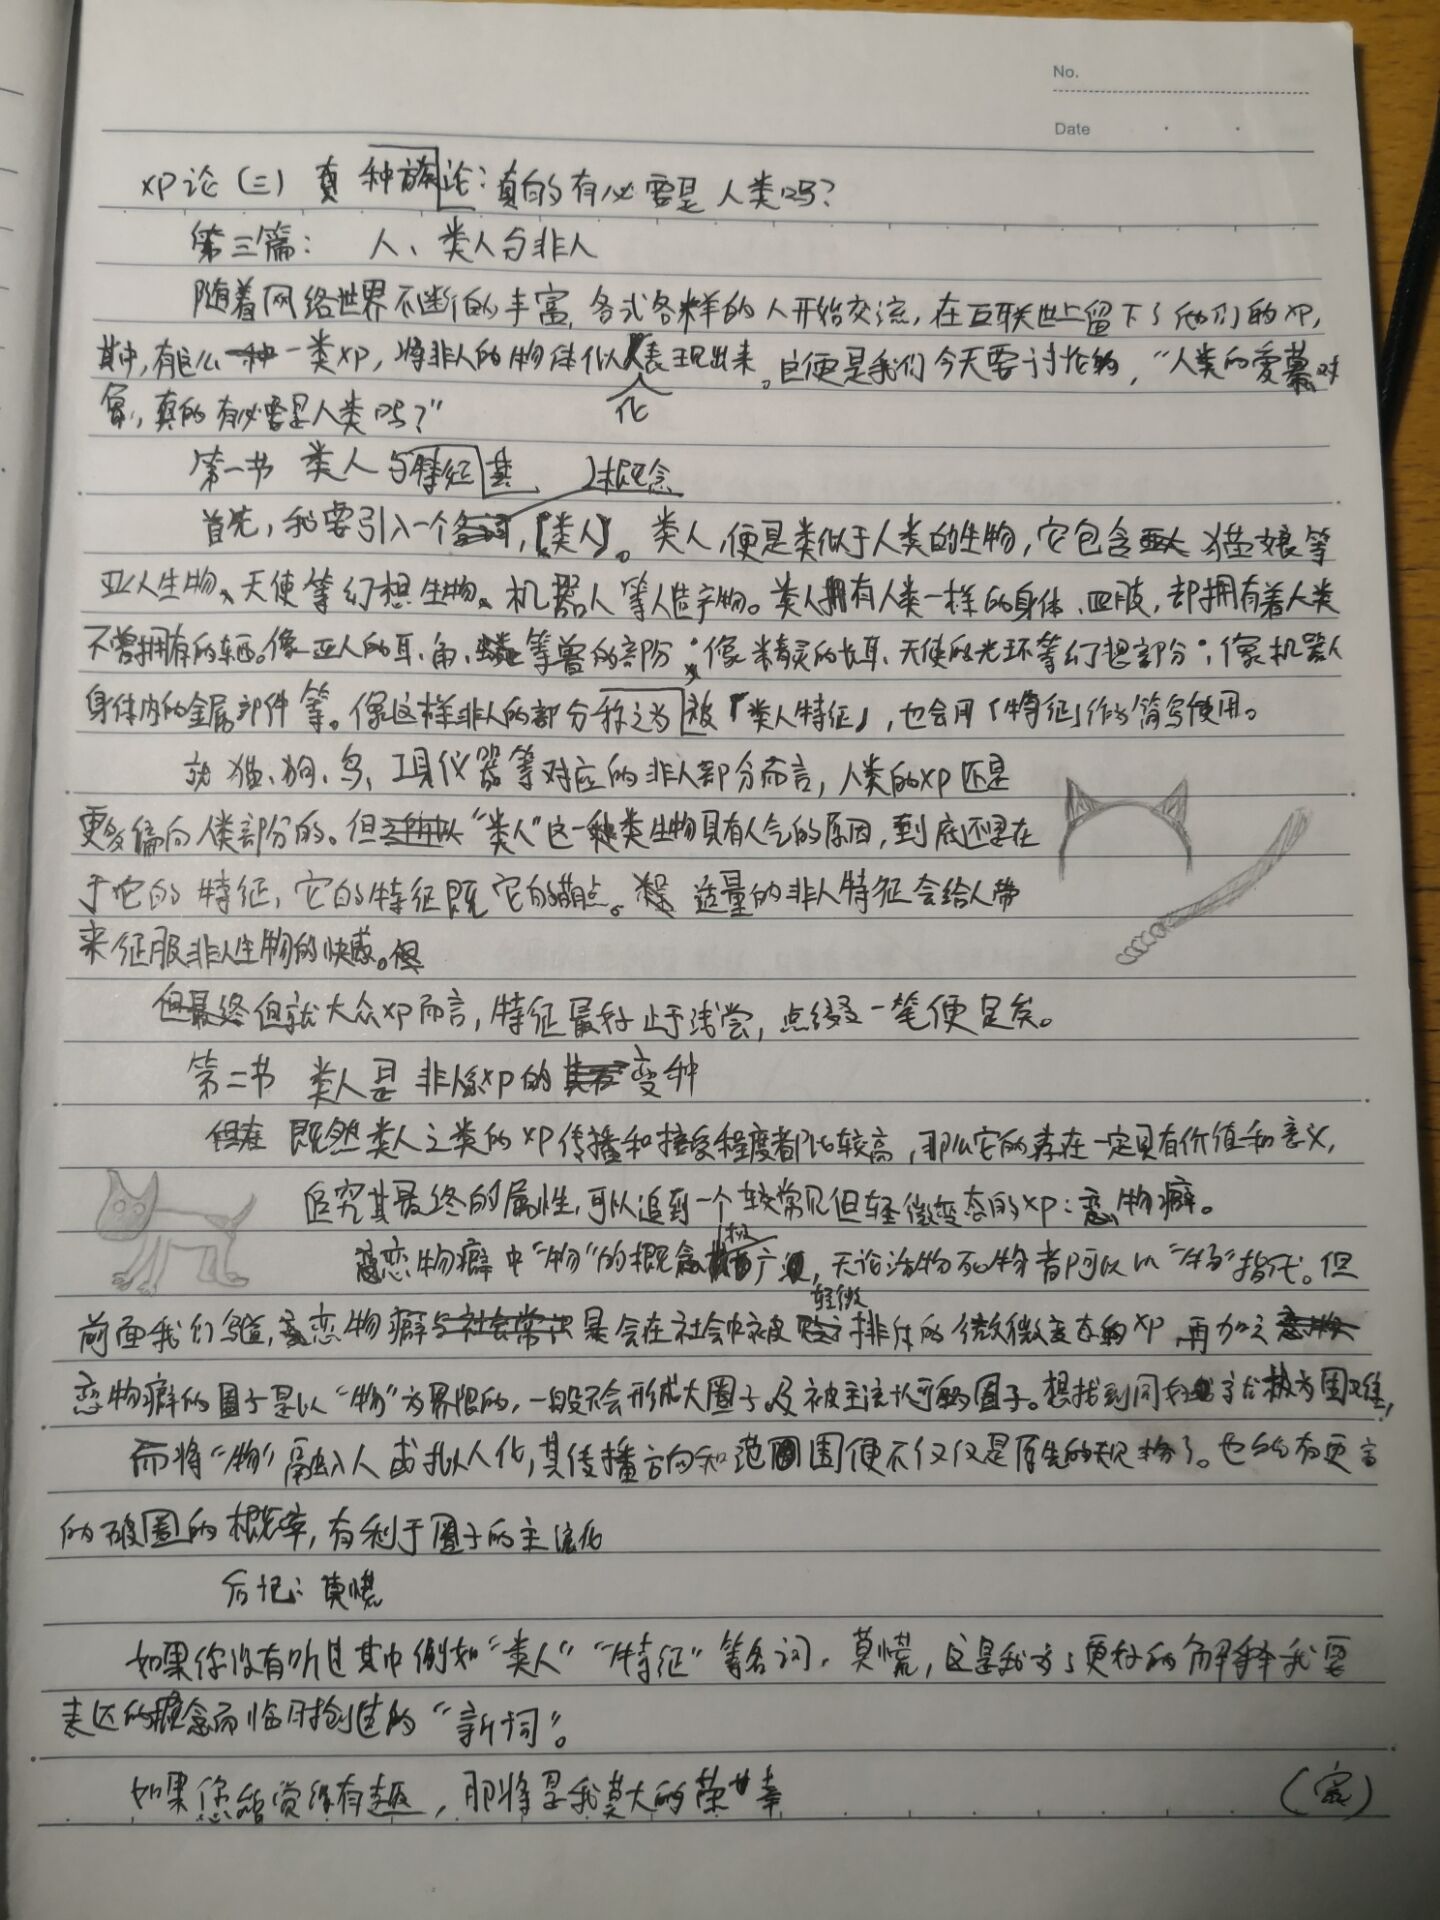 No.
Date
xp论(三) 真种族论:真的有必要是人类吗?
第三篇: 人、类人与非人
随着网络世界不断的丰富,各式各样的人开始交流,在互联世上留下了他们的xp,
其中,有这么一类xp,将非人的物体似人化表现出来。它便是我们今天要讨论的,“人类的爱慕对
象,真的有必要是人类吗?”
第一节 类人与特征
首先,我要引入一个概念,「类人」。类人,便是类似于人类的生物,它包含猫娘等
亚人生物、天使等幻想生物、机器人等人造产物。类人拥有人类一样的身体、四肢,却拥有着人类
不曾拥有的东西。像亚人的耳、角、等兽的部分;像精灵的长耳、天使的光环等幻想部分;像机器人
身体内的金属部件等。像这样非人的部分称之为「类人特征」,也会用「特征」作为简写使用。
就猫、狗、鸟、工具仪器等对应的非人部分而言,人类的xp还是
更多偏向人类部分的。但“类人”这一类生物具有人气的原因,到底还是在
于它的特征,它的特征既它的萌点。适量的非人特征会给人带
来征服非人生物的快感。
但就大众xp而言,特征最好止于浅尝,点缀一笔便足矣。
第二节 类人是非人系xp的变种
既然类人之类的xp传播和接受程度都比较高,那么它的存在一定具有价值和意义,
追究其最终的属性,可以追到一个较常见但轻微变态的xp:恋物癖。
恋物癖中“物”的概念极广,无论活物死物者都可以以“物”指代。但
前面我们写道,恋物癖是会在社会中被轻微排斥的微微变态的xp,再加之
恋物癖的圈子是以“物”为界限的,一般不会形成大圈子及被主流认可的圈子。想找到同好就极为困难,
而将“物”融入人或拟人化,其传播方向和范围便不仅仅是原先的规格了。也会有更高
的破圈的概率,有利于圈子的主流化
后记:莫慌
如果你没有听过其中例如“类人”“特征”等名词,莫慌,这是我为了更好的解释我要
表达的概念而临时创造的“新词”。
如果您能觉得有趣,那将是我莫大的荣幸
(完)